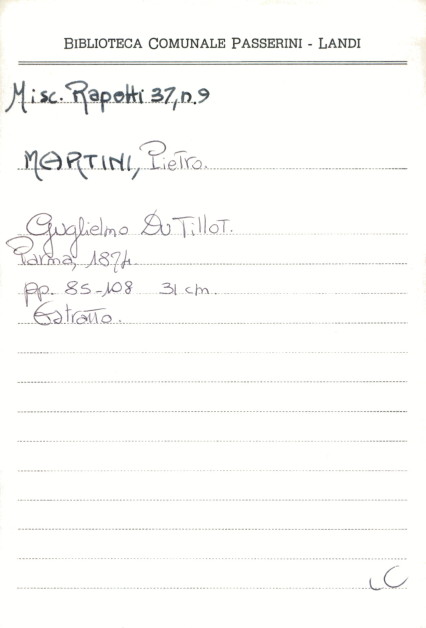 BIBLIOTECA COMUNALE PASSERINI - LANDI
Misc. Rapetti 37, n. 9
MARTINI, Pietro.
Guglielmo Du Tillot.
Parma, 1874.
pp. 85-108 31 cm.
Estratto.